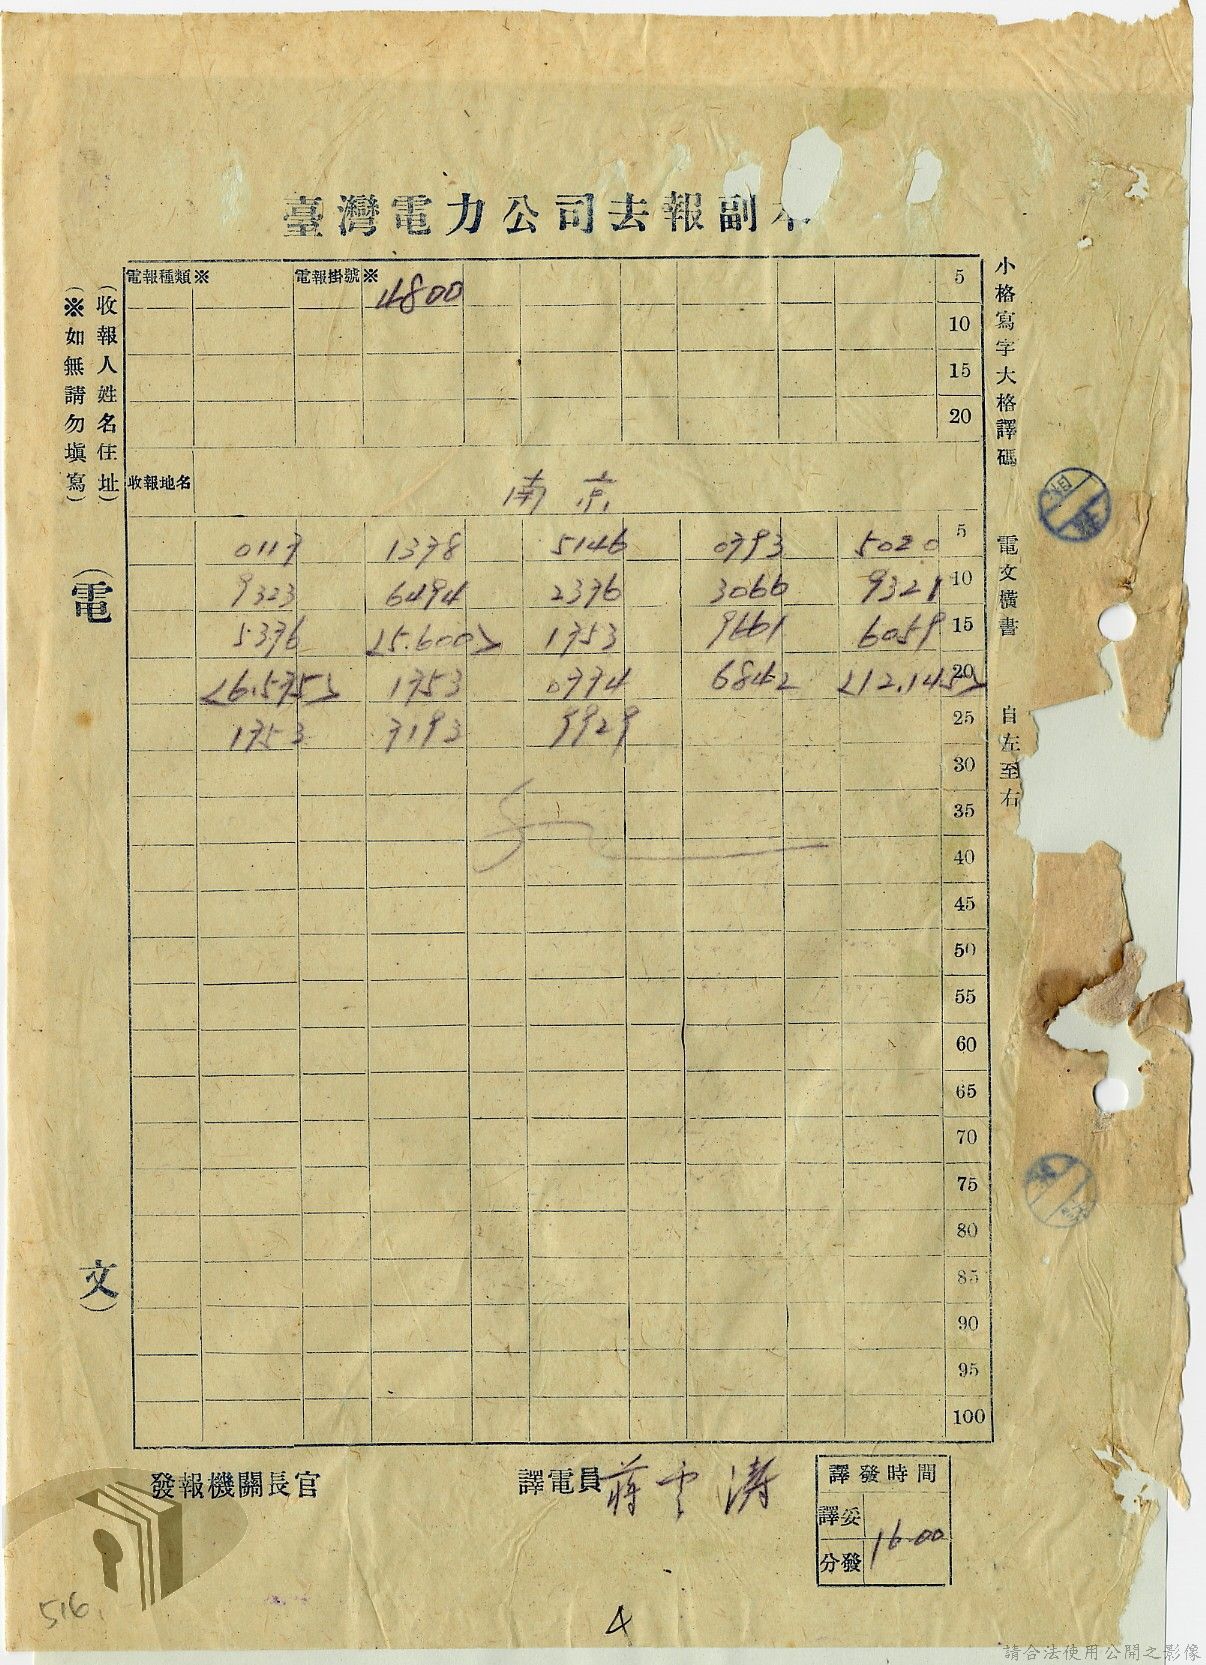 臺灣電力公司去報副本
電報種類※ 電報掛號※ 4800 5
10
15
20
收報地名 南京
0117 1378 5146 0793 5020 5
9323 6494 2376 3066 9321 10
5376 <5.600> 1753 9661 6059 15
<6.575> 1753 0774 6842 <12.145> 20
1753 7193 9929 25
30
35
40
45
50
55
60
65
70
75
80
85
90
95
100
(收報人姓名住址)
(※如無請勿填寫)
(電文)
小格寫字大格譯碼 電文橫書 自左至右
發報機關長官 譯電員 蔣雲濤
譯發時間
譯妥
分發 16.00
516
4
請合法使用公開之影像